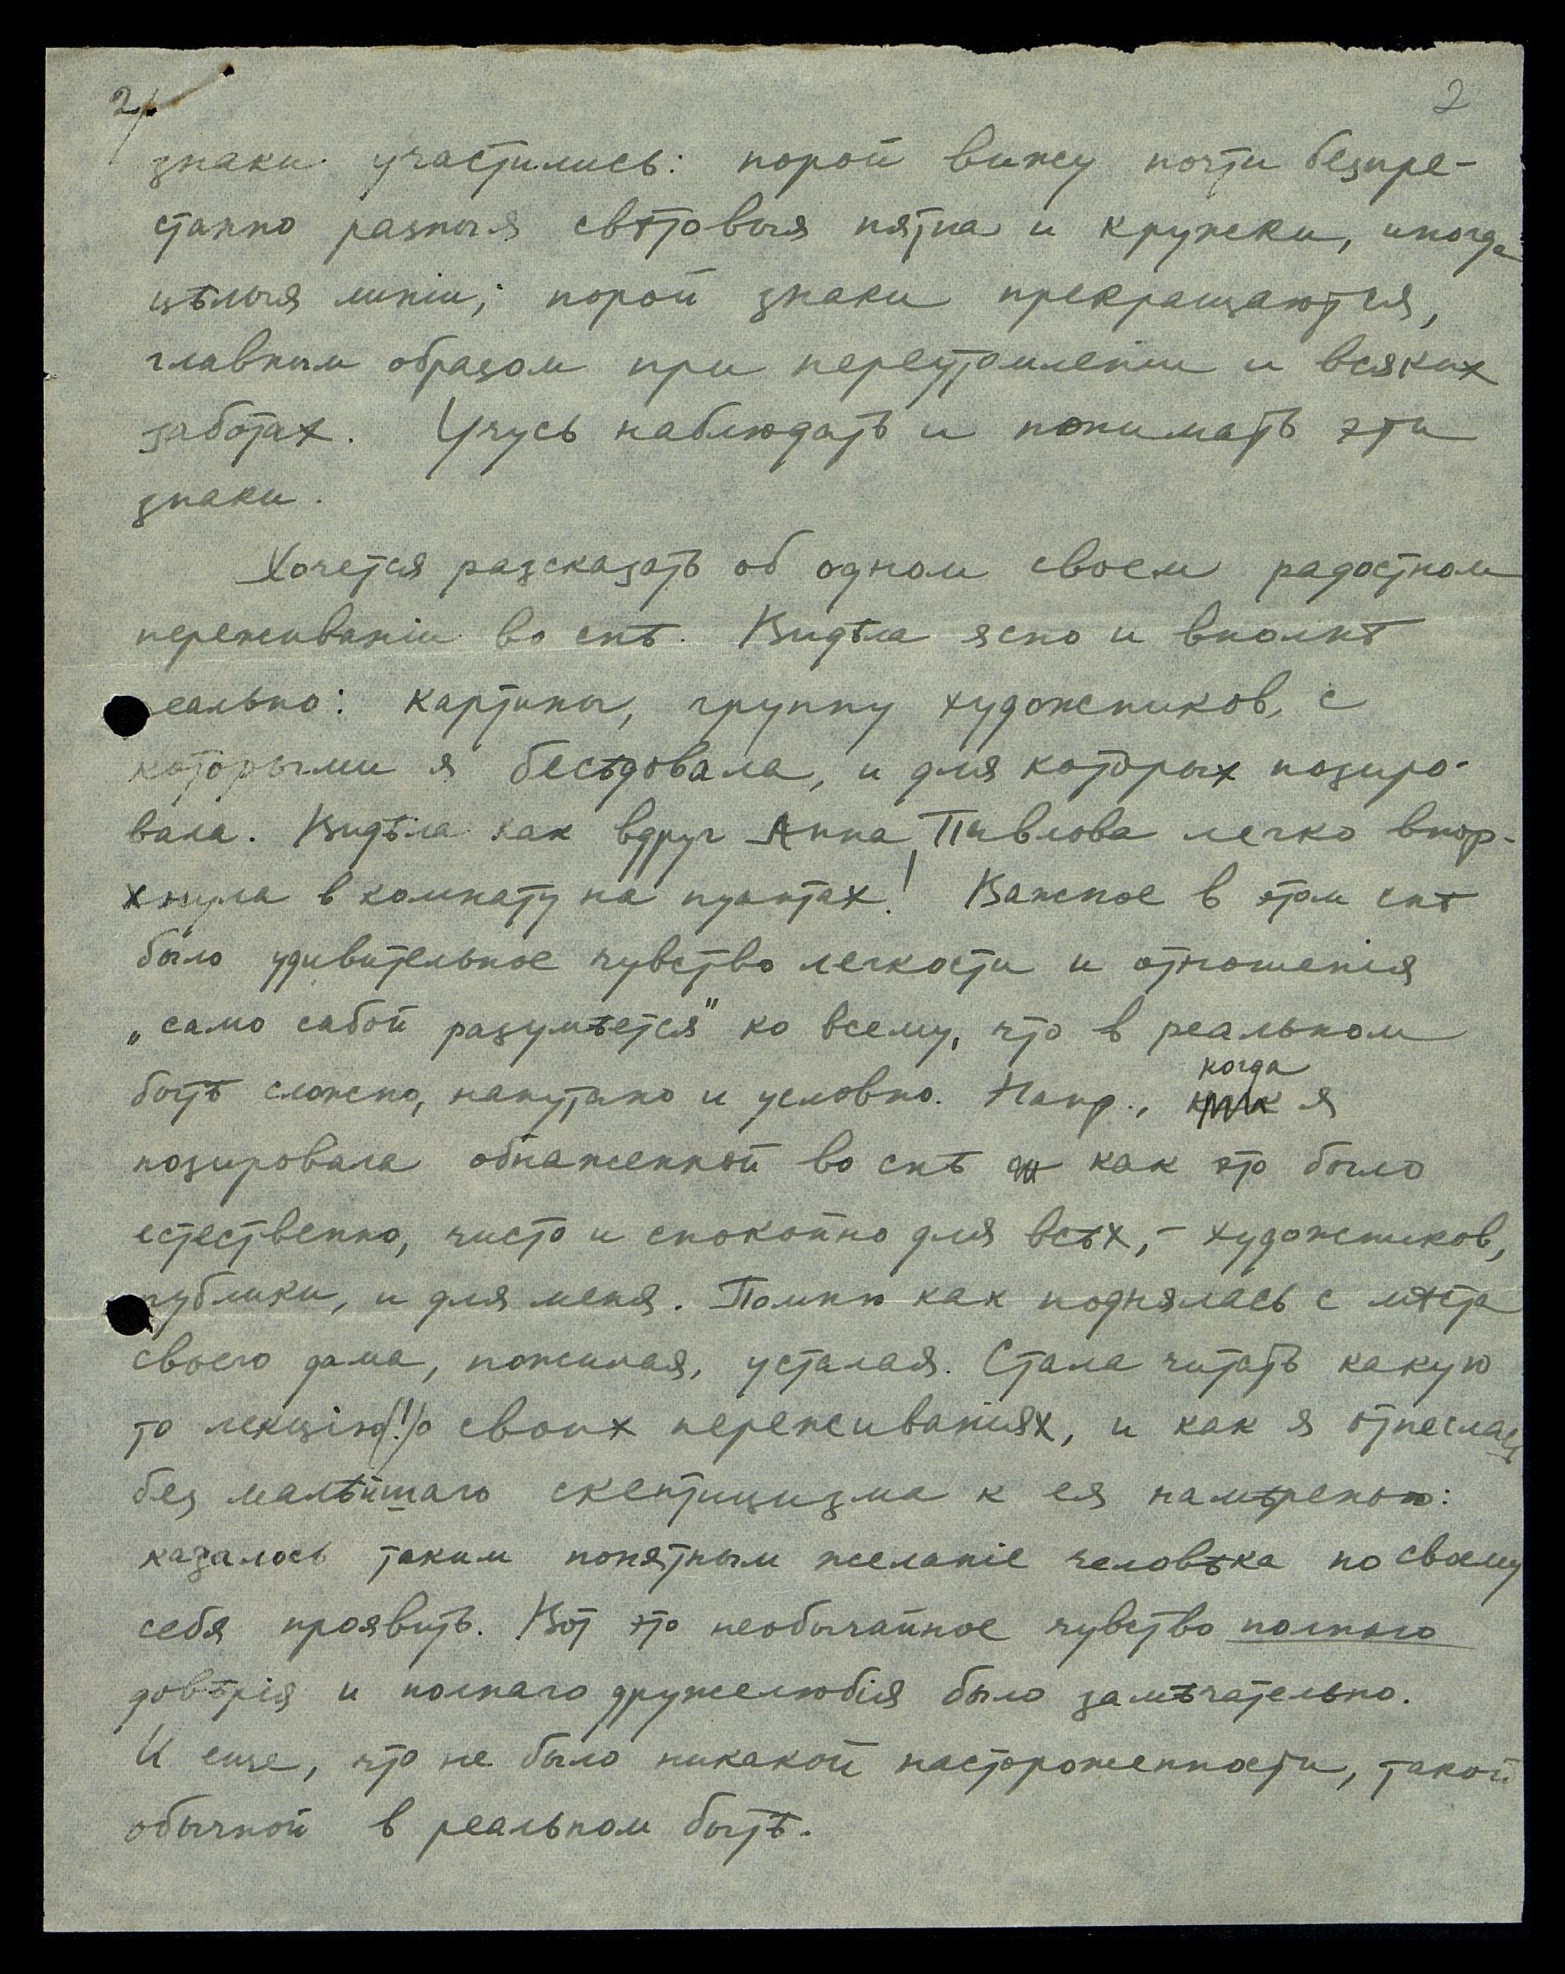 2/ 2
знаки участились: порой вижу почти безпре-
станно разныя свѣтовыя пятна и кружки, иногда
цѣлыя линіи; порой знаки прекращаются,
главным образом при переутомленіи и всяких
заботах. Учусь наблюдать и понимать эти
знаки.
Хочется разсказать об одном своем радостном
переживаніи во снѣ. Видѣла ясно и вполнѣ
реально: картины, группу художников, с
которыми я бесѣдовала, и для которых позиро-
вала. Видѣла как вдруг Анна Павлова легко впор-
хнула в комнату на пуантах! Важное в этом снѣ
было удивительное чувство легкости и отношенія
„само сабой разумѣется" ко всему, что в реальном
бытѣ сложно, напутано и условно. Напр.,
когда
я
позировала обнаженной во снѣ как это было
естественно, чисто и спокойно для всѣх, – художников,
публики, и для меня. Помню как поднялась с мѣста
своего дама, пожилая, усталая. Стала читать какую
то лекцію(!) о своих переживаніях, и как я отнеслась
без малѣйшаго скептицизма к ея намѣренію:
казалось таким понятным желаніе человѣка по своему
себя проявить. Вот это необычайное чувство полнаго
довѣрія и полнаго дружелюбія было замѣчательно.
И еще, что не было никакой настороженности, такой
обычной в реальном бытѣ.